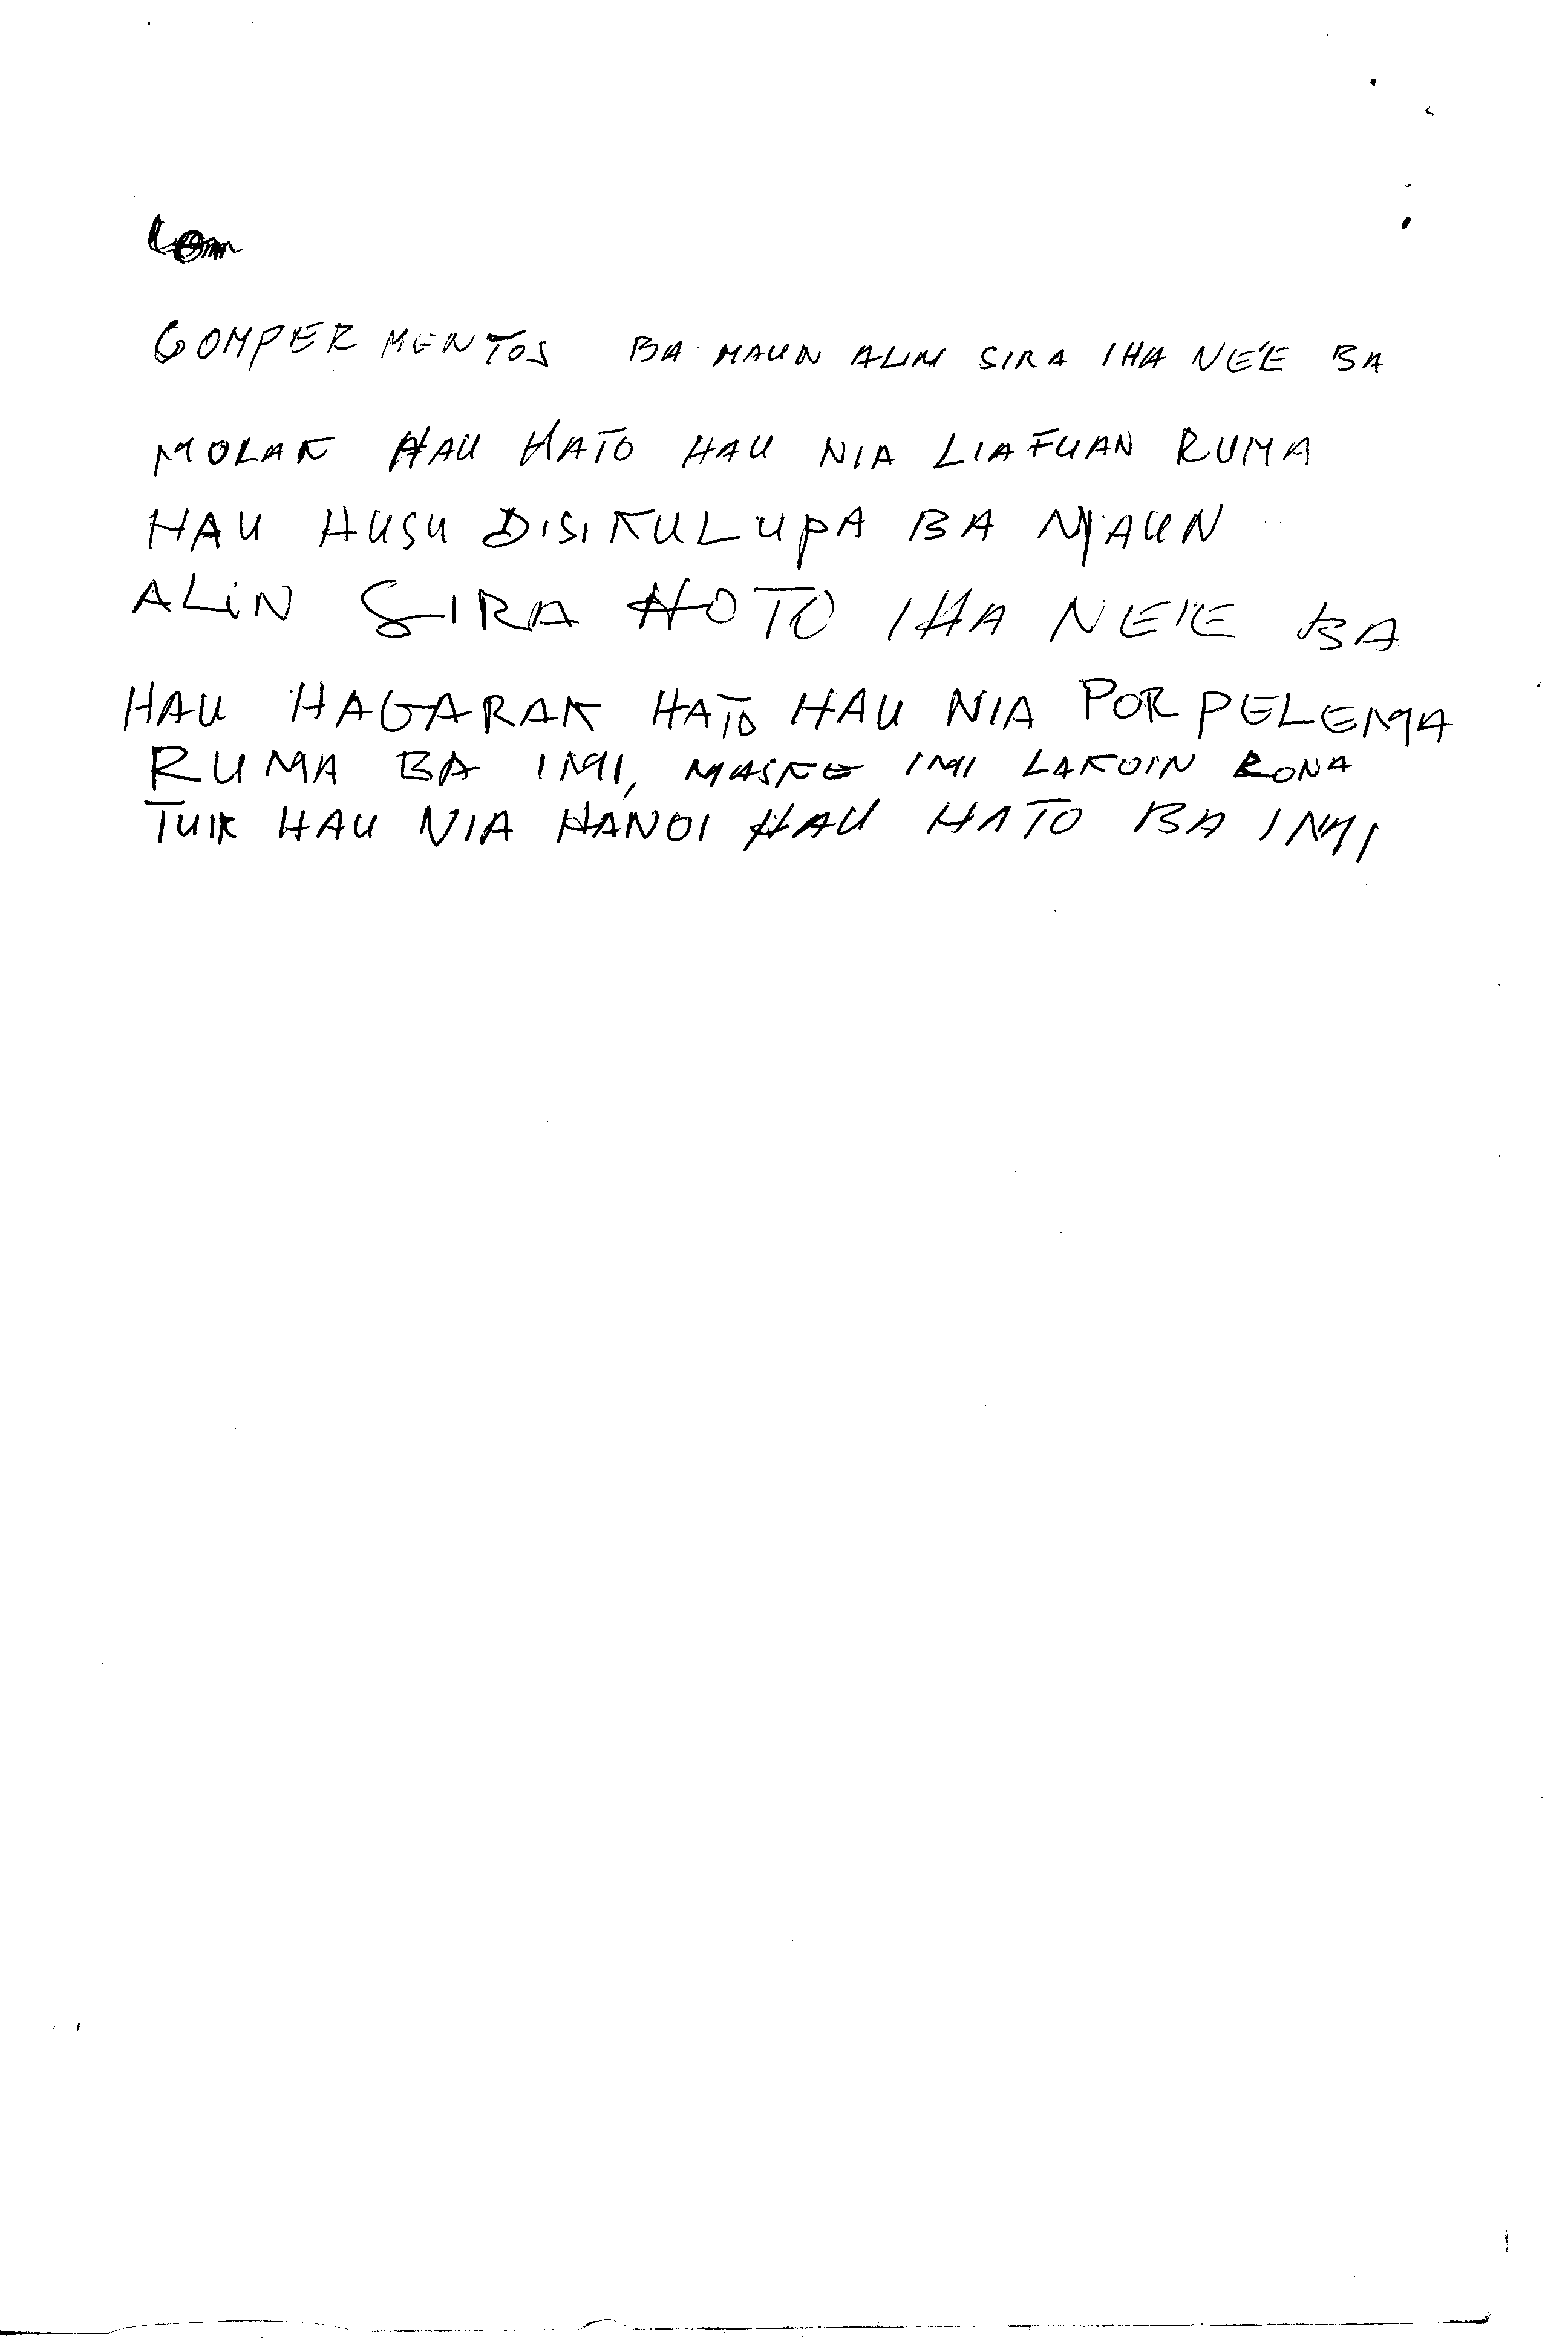 COMPER MENTOS BA MAUN ALIN SIRA IHA NE'E BA
MOLAK HAU HATO HAU NIA LIAFUAN RUMA
HAU HUSU DISIKULUPA BA MAUN
ALIN SIRA HOTO IHA NE'E BA
HAU HAGARAK HATO HAU NIA PORPELEMA
RUMA BA IMI, MASKE IMI LAKOIN RONA
TUIR HAU NIA HANOI HAU HATO BA IMI